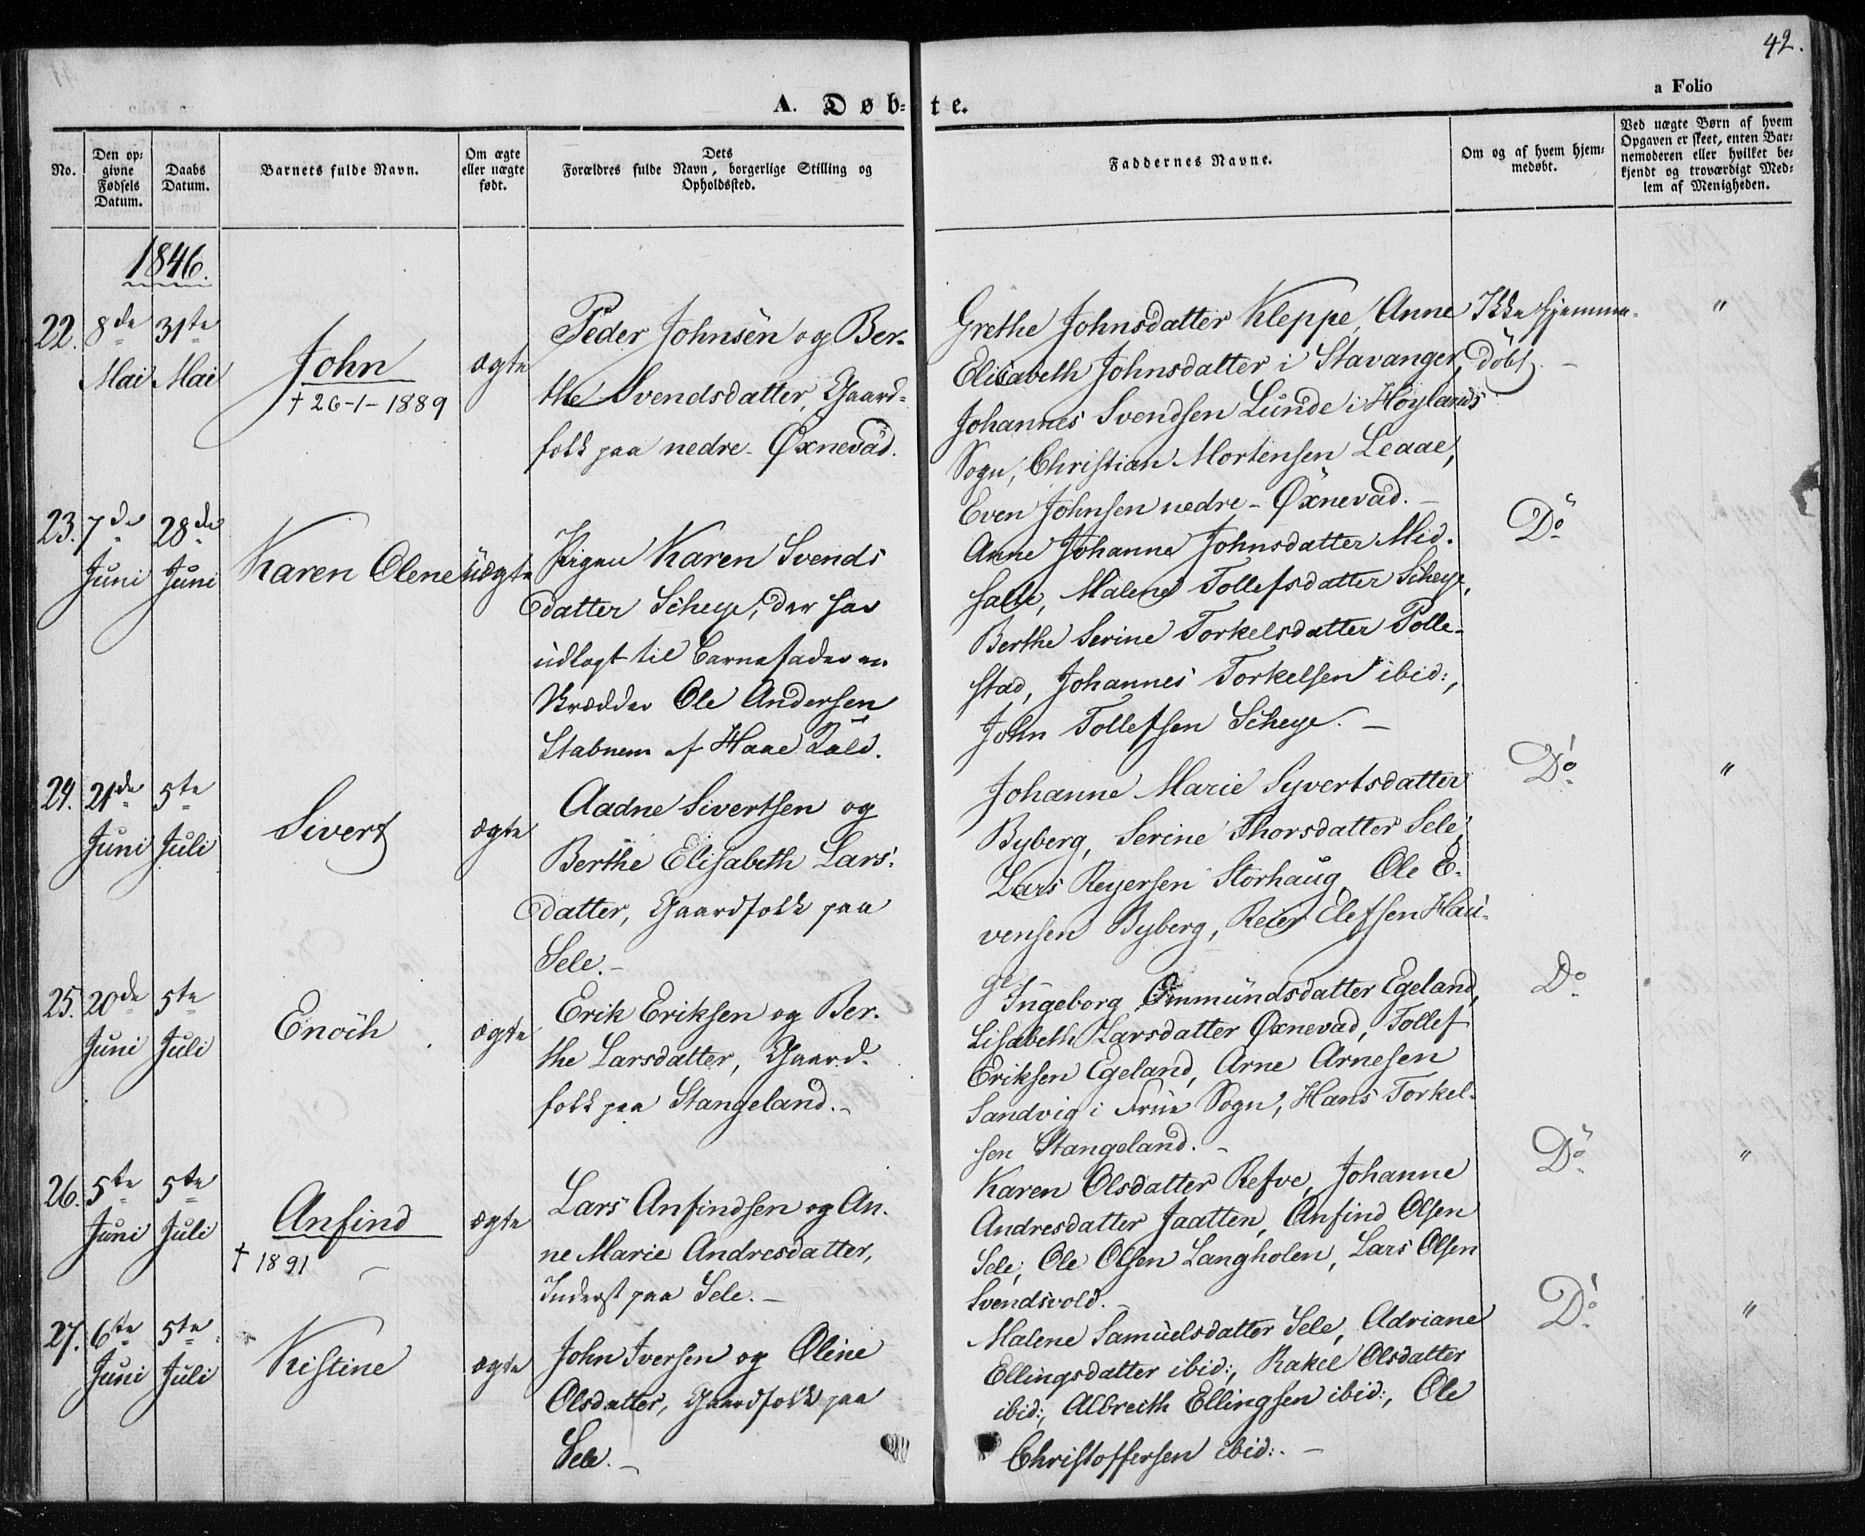 42.
a Folio
A. Døb-te.
No.
Den op-
givne
Fødsels
Datum.
Daabs
Datum.
Barnets fulde Navn.
Om ægte
eller uægte
født.
Dets
Forældres fulde Navn, borgerlige Stilling og
Opholdssted.
Faddernes Navne.
Om og af hvem hjem-
medøbt.
Ved uægte Børn af hvem
Opgaven er skeet, enten Bar-
nemoderen eller hvilket be-
kjendt og troværdigt Med-
lem af Menigheden.
1846.
22. 8de Mai
31te Mai
John
† 26-1-1889
ægte
Peder Johnsen og Ber-
the Svendsdatter, Gaard-
folk paa nedre-Øxnevad.
Grethe Johnsdatter Kleppe, Anne
Elisabeth Johnsdatter i Stavanger,
Johannes Svendsen Lunde i Høylands
Sogn, Christian Mortensen Leaae,
Even Johnsen nedre-Øxnevad.-
Ikke hjemme-
døbt.-
"
23. 7de Juni
28de Juni
Karen Olene
uægte
Pigen Karen Svends
datter Scheye, der har
udlagt til Barnefader en
Skrædder Ole Andersen
Stabnem af Haae Præld.
Anne Johanne Johnsdatter Mid-
, Malene Tollefsdatter Scheye,
Berthe Serine Torkelsdatter Polle-
stad, Johannes Torkelsen ibid:,
John Tollefsen Scheye.-
Do
24. 21de Juni
5te Juli
Sivert
ægte
Aadne Sivertsen og
Berthe Elisabeth Lars-
datter, Gaardfolk paa
Sele.-
Johanne Marie Syvertsdatter
Byberg, Serine Thorsdatter Sele,
Lars Reyersen Storhaug, Ole E-
vensen Byberg, Reier Elefsen Hau-
ge
Do
"
25. 20de Juni
5te Juli
Enoch
ægte
Erik Eriksen og Ber-
the Larsdatter, Gaard-
folk paa Stangeland.-
Ingeborg Ommundsdatter Egeland,
Lisabeth Larsdatter Øxnevad, Tollef
Eriksen Egeland, Arne Arnesen
Sandvig i Frue Sogn, Hans Torkel-
sen Stangeland.-
Do
26. 5te Juni
5te Juli
Anfind
† 1891
ægte
Lars Anfindsen og An-
ne Marie Andresdatter,
Inderst paa Sele.-
Karen Olsdatter Refve, Johanne
Andresdatter Jaatten, Anfind Olsen
Sele, Ole Olsen Langholen, Lars Olsen
Svendsvold.-
Do
"
27. 6te Juni
5te Juli
Kistine
ægte
John Iversen og Oline
Olsdatter, Gaardfolk paa
Sele.-
Malene Samuelsdatter Sele, Adriane
Ellingsdatter ibid:, Rakel Olsdatter
ibid:, Albrecth Ellingsen ibid:, Ole
Christoffersen ibid:.-
Do
"